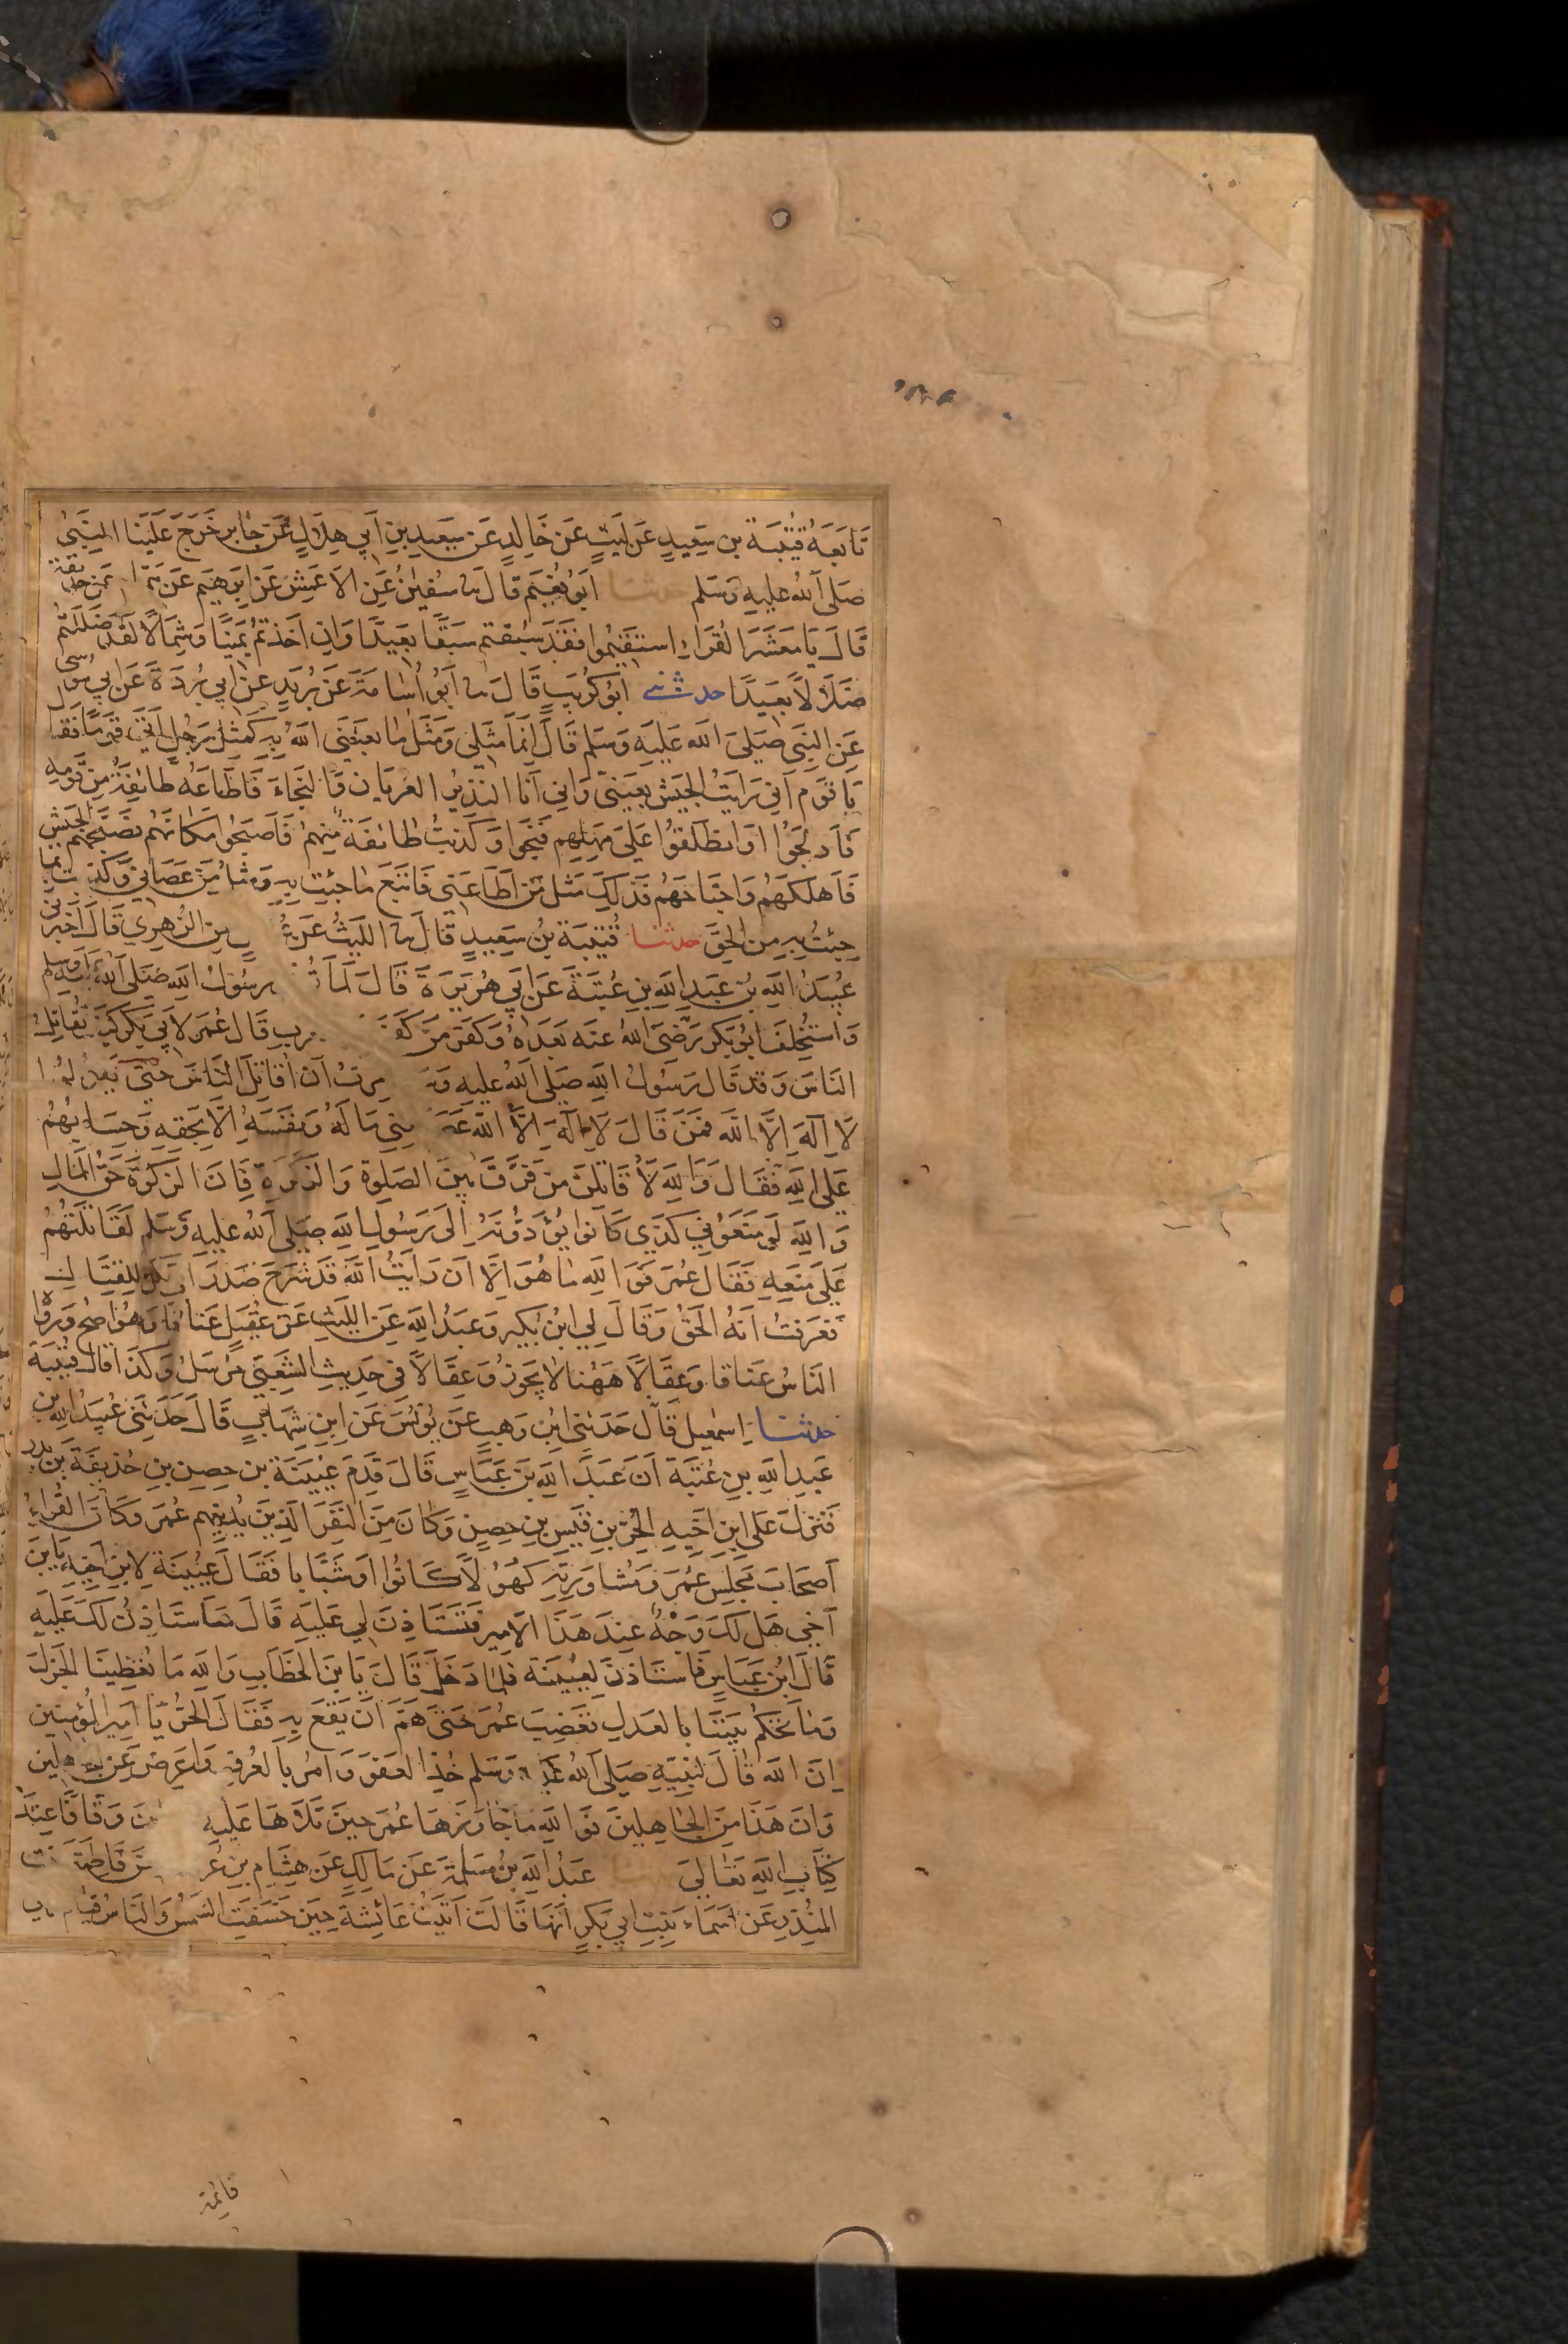 تَابَعَهُ قُتَيْبَةُ بن سَعِيدٍ عَن لَيثٍ عَن خَالِدٍ عَن سَعِيدِ بنِ اَبِي هِلَالٍ عَن جَابِرٍ خَرَجَ عَلَينَا النَّبِيُّ
صَلَى اللهُ عليهِ وَسَلم حدثنا اَبُو نُعَيمٍ قَالَ نا سُفيٰنُ عَنِ الاَعمَشِ عَن اِبرٰهِيمَ عَن همّام عَن حذيفة
قَالَ يَا مَعشَرَ القُرّاءِ استَقِيمُوا فَقَد سَبَقتم سَبقًا بَعِيدًا وَاِن اَخَذتُم يَمينًا وَشِمَالًا لَقَد ضَلَلتُم
ضَلَالًا بَعِيدًا حدثنى ابُو كُرَيبٍ قَالَ نا اَبُو اُسَامَةَ عَن بُرَيدٍ عَن اَبِي بُردَةَ عَن اَبِي مُوسى
عَنِ النَّبِي صَلَى الله عَلَيهِ وَسَلم قَالَ اِنَّمَا مَثَلي وَمَثَلُ مَا بَعَثَنِي اللهُ بِهِ كَمَثَلِ رَجُلٍ اَتَى قَومًا فَقال
يَا قَومِ اِنّي رَاَيتُ الجَيشَ بِعَينَيَّ وَاِنّي اَنَا النَذِيرُ العُريَان فَالنَّجَاءَ فَاَطَاعَهُ طَائِفَةٌ مِن قَومِهِ
فَاَدلَجُوا وَانطَلَقُوا عَلَى مَهَلِهِم فَنَجَوا وَكَذَبَتْ طَائِفَةٌ مِنهُم فَاَصبَحُوا مَكَانَهُم فَصَبَّحَهُم الجَيشُ
فَاَهلَكَهُم وَاجتَاحَهُم فَذَلِكَ مَثَلُ مَن اَطَاعَنِي فَاتَّبَعَ مَا جِئتُ بِهِ وَمَثَلُ مَن عَصَانِي وَكَذّبَ بِمَا
جِئتُ بِهِ مِنَ الحَقِّ حدثنا قُتَيبَة بنُ سَعِيدٍ قَالَ نا اللَيثُ عَن عُ عنِ الزُهرِي قَالَ اَخبَرني
عُبَيدُ اللهِ بنُ عَبدِ اللهِ بنِ عُتبَةَ عَن اَبِي هُرَيرَةَ قَالَ لَمّا تُ رَسُولُ اللهِ صَلَى اللهُ عليه وسلم
وَاستُخلِفَ اَبُو بَكرٍ رَضيَ اللهُ عَنهُ بَعدَهُ وَكَفَرَ مَن كَفَ رَبِ قَال عُمَر لاَبِي بَكرٍ كَيفَ تُقَاتِلُ
النَاسَ وَقَد قَالَ رَسُولُ اللهِ صَلى اللهُ عليهِ وَ مِرتُ اَن اُقَاتِلَ النَّاسَ حَتّى يَقُولُوا
لَا اِلَهَ اِلَّا الله فَمَن قَالَ لَا اِلَهَ اِلَّا اللهُ عَ مِنّي مَالَهُ وَنَفسَهُ اِلَّا بِحَقِّهِ وَحِسَابُهُم
عَلَى اللهِ فَقَالَ وَاللهِ لَاُقَاتِلَنَّ مَن فَرَّقَ بَينَ الصَلوةِ وَالزَكوةِ فَاِنَّ الزَكوةَ حَقُّ المَالِ
وَاللهِ لَو مَنَعُونِي كَذَي كَانُوا يُؤَدُّونَهُ اِلَى رَسُولِ اللهِ صَلَى اللهُ عليهِ وَسَلم لَقَاتَلتُهُم
عَلَى مَنعِهِ فَقَالَ عُمَر فَوَاللهِ مَا هُوَ اِلَّا اَن رَاَيتُ اللهَ قَد شَرَحَ صَدرَ اَبِي بَكرٍ لِلقِتَالِ
فَعَرَفتُ اَنَّهُ الحَقُّ وَقَالَ لِي ابنُ بُكَيرٍ وَعَبدُ اللهِ عَن اللَيثِ عَن عُقَيلٍ عَنَاقًا وَهُوَ اَصَحُّ وَرَوَاهُ
النَاسُ عَنَاقًا وَعِقَالًا هٰهُنَا لَا يَجُوزُ وَعِقَالًا فِي حَدِيثِ الشَّعبِي مُرسَلٌ وَكَذَا قَالَ قُتَيبَة
حدثنا اِسمٰعِيلُ قَال حَدَثَنِي ابنُ وَهبٍ عَن يُونُسَ عَنِ ابنِ شِهَابٍ قَالَ حَدَثَنِي عُبَيدُ اللهِ بنُ
عَبدِ اللهِ بنِ عُتبَةَ اَنَّ عَبدَ اللهِ بنَ عَبَّاسٍ قَالَ قَدِمَ عُيَينَةُ بن حِصنِ بنِ حُذَيفَةَ بن بَدر
فَنَزَلَ عَلَى ابنِ اَخِيهِ الحُرِّ بنِ قَيسِ بنِ حِصنٍ وَكَانَ مِنَ النَفَرِ الَذِينَ يُدنِيهِم عُمَر وَكَانَ القُرّاءُ
اَصحَابَ مَجلِسِ عُمَر وَمُشَاوَرَتِهِ كُهُولًا كَانُوا اَو شُبَّانًا فَقَالَ عُيَينَة لِابنِ اَخِيهِ يَا بنَ
اَخِي هَل لَكَ وَجهٌ عِندَ هَذَا الاَمِيرِ فَتَستَاذِنَ لِي عَلَيهِ قَالَ سَاَستَاذِنُ لَكَ عَلَيهِ
قَالَ ابنُ عَبَّاسٍ فَاستَاذَنَ لِعُيَينَة فَلَمَّا دَخَلَ قَالَ يَا بنَ الخَطَّابِ وَاللهِ مَا تُعطِينَا الجَزلَ
وَمَا تَحكُم بَينَنَا بِالعَدلِ فَغَضِبَ عُمَر حَتّى هَمَّ اَن يَقَعَ بِهِ فَقَالَ الحُرُّ يَا اَمِيرَ المُؤمِنِين
اِنَّ اللهَ قَالَ لِنَبِيِّهِ صَلَى اللهُ عليه وَسَلم خُذِ العَفوَ وَامُر بِالعُرفِ وَاَعرِض عَنِ الجاهلين
وَاِنَّ هَذَا مِنَ الجَاهِلِينَ فَوَاللهِ مَا جَاوَزَهَا عُمَر حِينَ تَلَاهَا عَلَيهِ نَ وَقَّافًا عِندَ
كِتَابِ اللهِ تَعَالَى عَبدُ اللهِ بنُ مَسلَمَةَ عَن مَالِكٍ عَن هِشَامِ بنِ عُر عَن فَاطِمَةَ بنت
المُنذِرِ عَن اَسمَاءَ بِنتِ اَبِي بَكرٍ اَنَّهَا قَالَت اَتَيتُ عَائِشَةَ حِينَ خَسَفَتِ الشَمسُ وَالنَاسُ قِيَام
قائمة